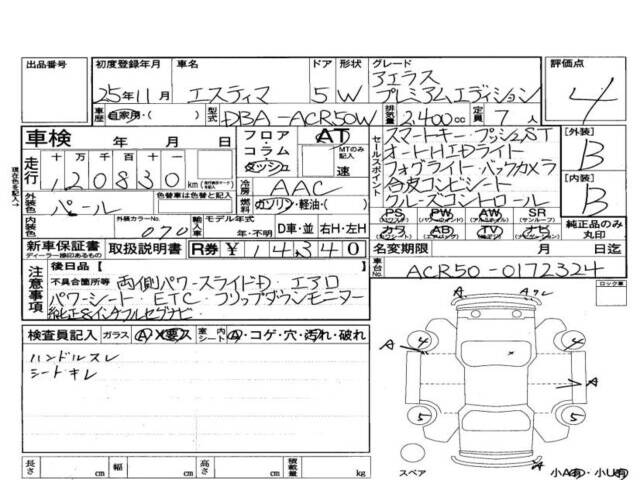 出品番号 初度登録年月 車名 ドア 形状 グレード 評価点
25年11月 エスティマ 5 W アエラス プレミアムエディション 4
車歴 自家用・( ) 型式 DBA-ACR50W 排気量 2,400cc 定員 7人
車検 年 月 日 フロア コラム ダッシュ AT MTのみ記入 速
セールスポイント スマートキー・プッシュST
オートHIDライト
フォグライト・バックカメラ
合皮コンビシート
クルーズコントロール
[外装] B
[内装] B
走行 十 万 千 百 十 一
120830 km
冷房 AAC
色替車は色替と記入
外装色 パール 燃料 ガソリン・軽油・( )
PS PW AW SR
(パワステ) (パワーウィンドウ) (アルミホイル) (サンルーフ)
カワ AB TV ナビ
純正品のみ丸印
内装色 外装カラーNo. 070 輸入車 モデル年式 年・不明 D車・並 右H・左H
新車保証書 ディーラー印のあるもの 取扱説明書 R券 ¥ 14,340 名変期限 月 日迄
車台No. ACR50-0172324
現在色を記入→
注意事項 後日品[
不具合箇所等 両側パワースライドD・エアロ
パワーシート・ETC・フリップダウンモニター
純正8インチフルセグナビ
ロック車
検査員記入 ガラス A・X・要ス 室内シート A・コゲ・穴・汚れ・破れ
ハンドルスレ
シートキレ
A Aク
A 4 4
A
5 5
スペア 小A有・小U有
長さ cm 幅 cm 高さ cm 積載量 kg